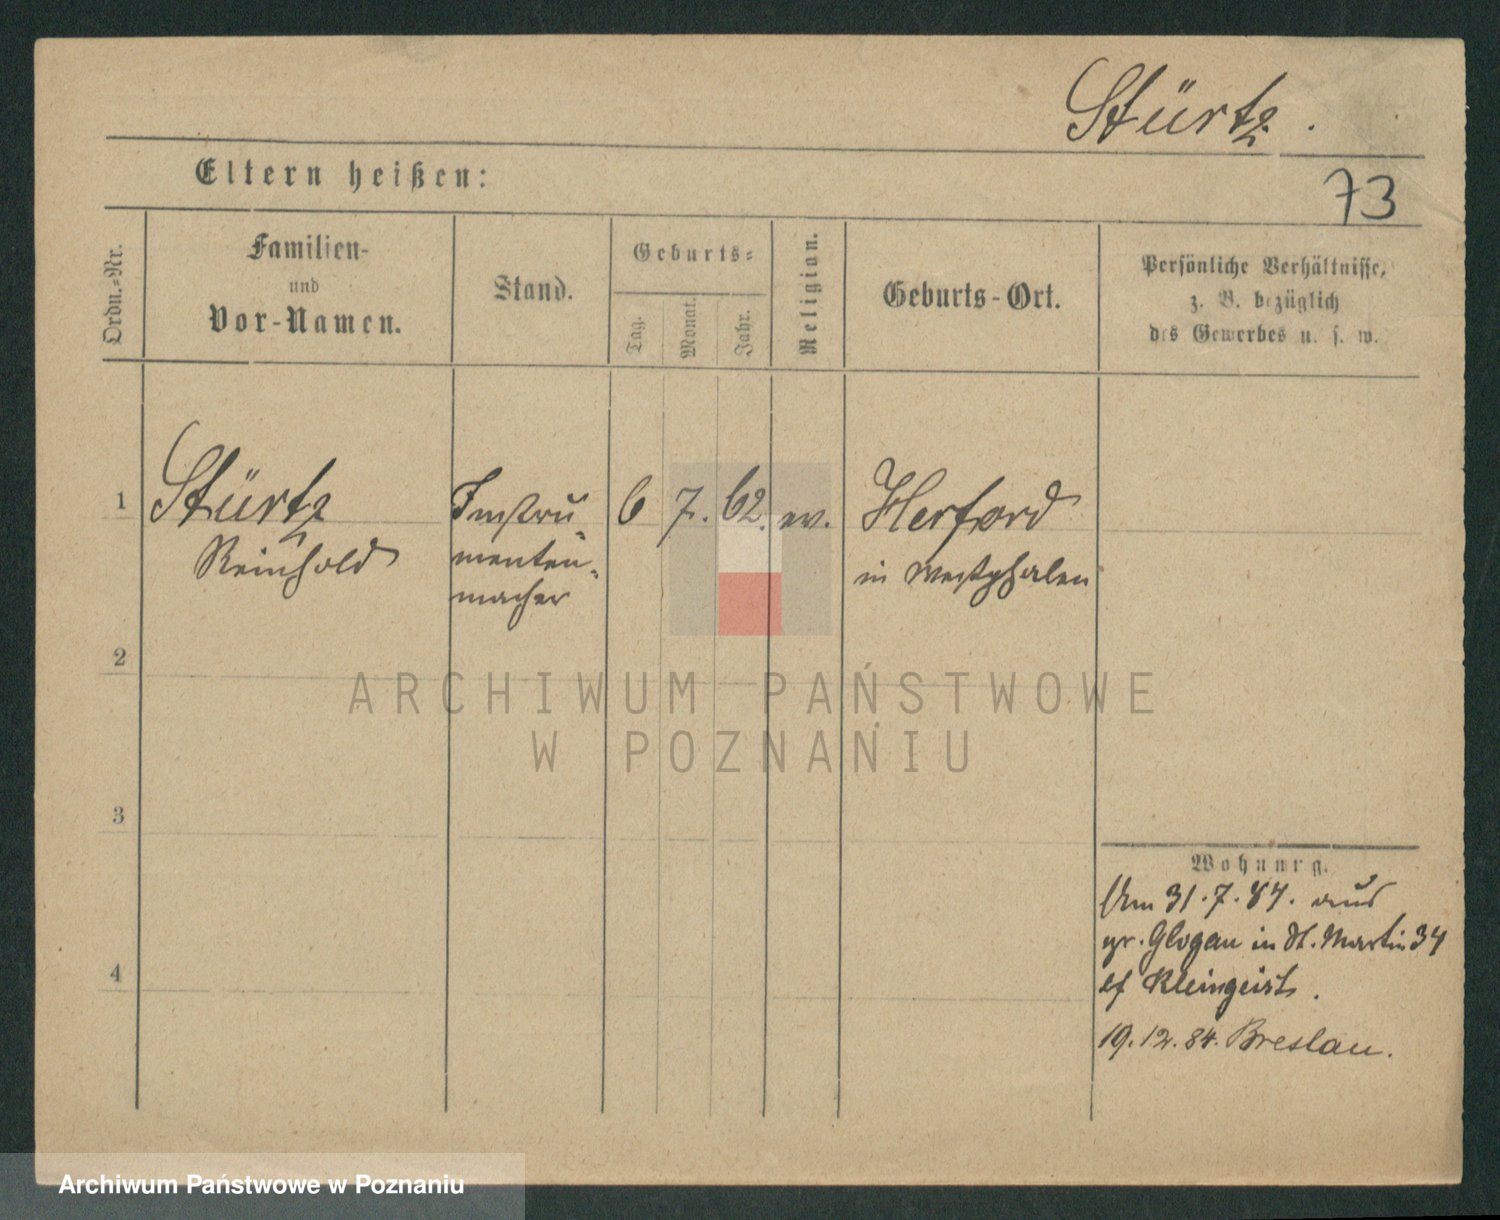 Stürtz.
Eltern heißen:
73
Ordn.-Nr.
Familien-
und
Vor-Namen.
Stand.
Geburts-
Tag.
Monat.
Jahr.
Religion.
Geburts-Ort.
Persönliche Verhältnisse,
z. B. bezüglich
des Gewerbes u. s. w.
1
Stürtz
Reinhold
Instru-
menten-
macher
6
7.
62.
ev.
Herford
in Westphalen
2
3
4
ARCHIWUM PAŃSTWOWE
W POZNANIU
Wohnung.
Am 31.7.84. aus
gr. Glogau in St. Martin 34
Kleingeist.
19.12.84. Breslau.
Archiwum Państwowe w Poznaniu